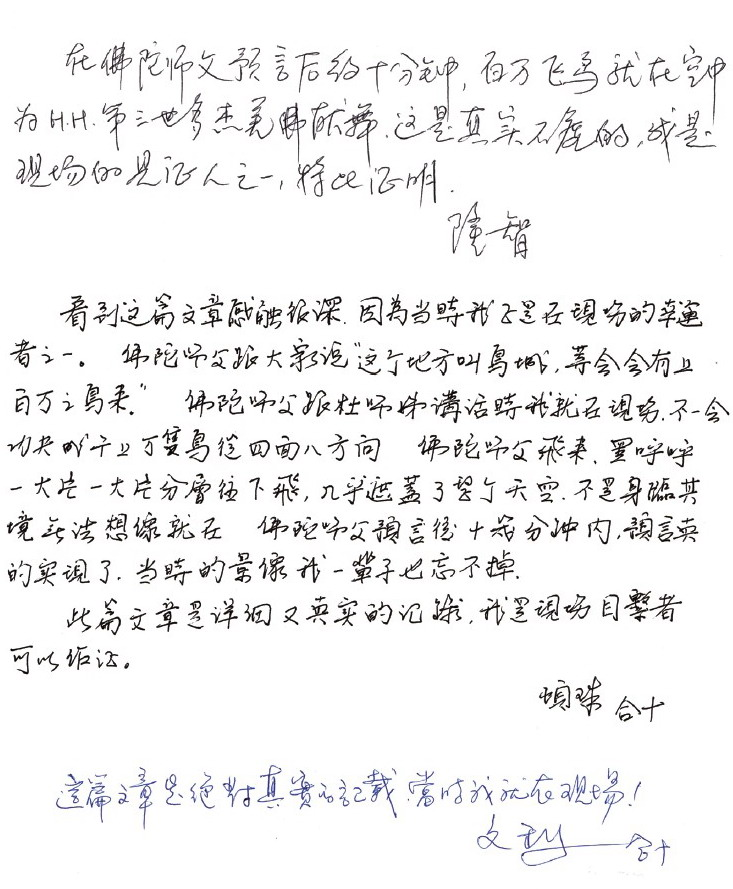 在佛陀师父预言后约十分钟，百万飞鸟就在空中
为H.H.第三世多杰羌佛献舞.这是真实不虚的,我是
现场的见证人之一,特此证明.
隆智
看到这篇文章感触很深.因為当時我也是在現场的幸運
者之一。 佛陀师父跟大家说"这个地方叫鳥城,等会会有上
百万之鳥来." 佛陀师父跟杜师姊講话時我就在現场.不一会
功夫成千上万隻鳥從四面八方向 佛陀师父飛来.黑呼呼
一大片一大片分層往下飛,几乎遮蓋了整个天空.不是身臨其
境無法想像就在 佛陀师父預言後十幾分钟内,預言真
的实現了.当時的景像我一輩子也忘不掉.
此篇文章是详细又真实的记錄,我是現场目擊者
可以作证。
合十
這篇文章是絕对真實的記載.當时我就在现場!
文 合十